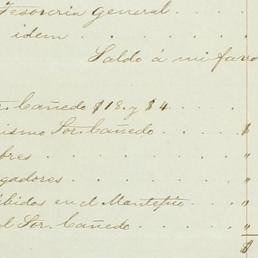 Tesorería general
idem
Saldo á mi favo
r. Cañedo $18. y $4
ismo Sor. Cañedo $
bres "
gadores "
bidos en el "
l Sor. Cañedo "
$